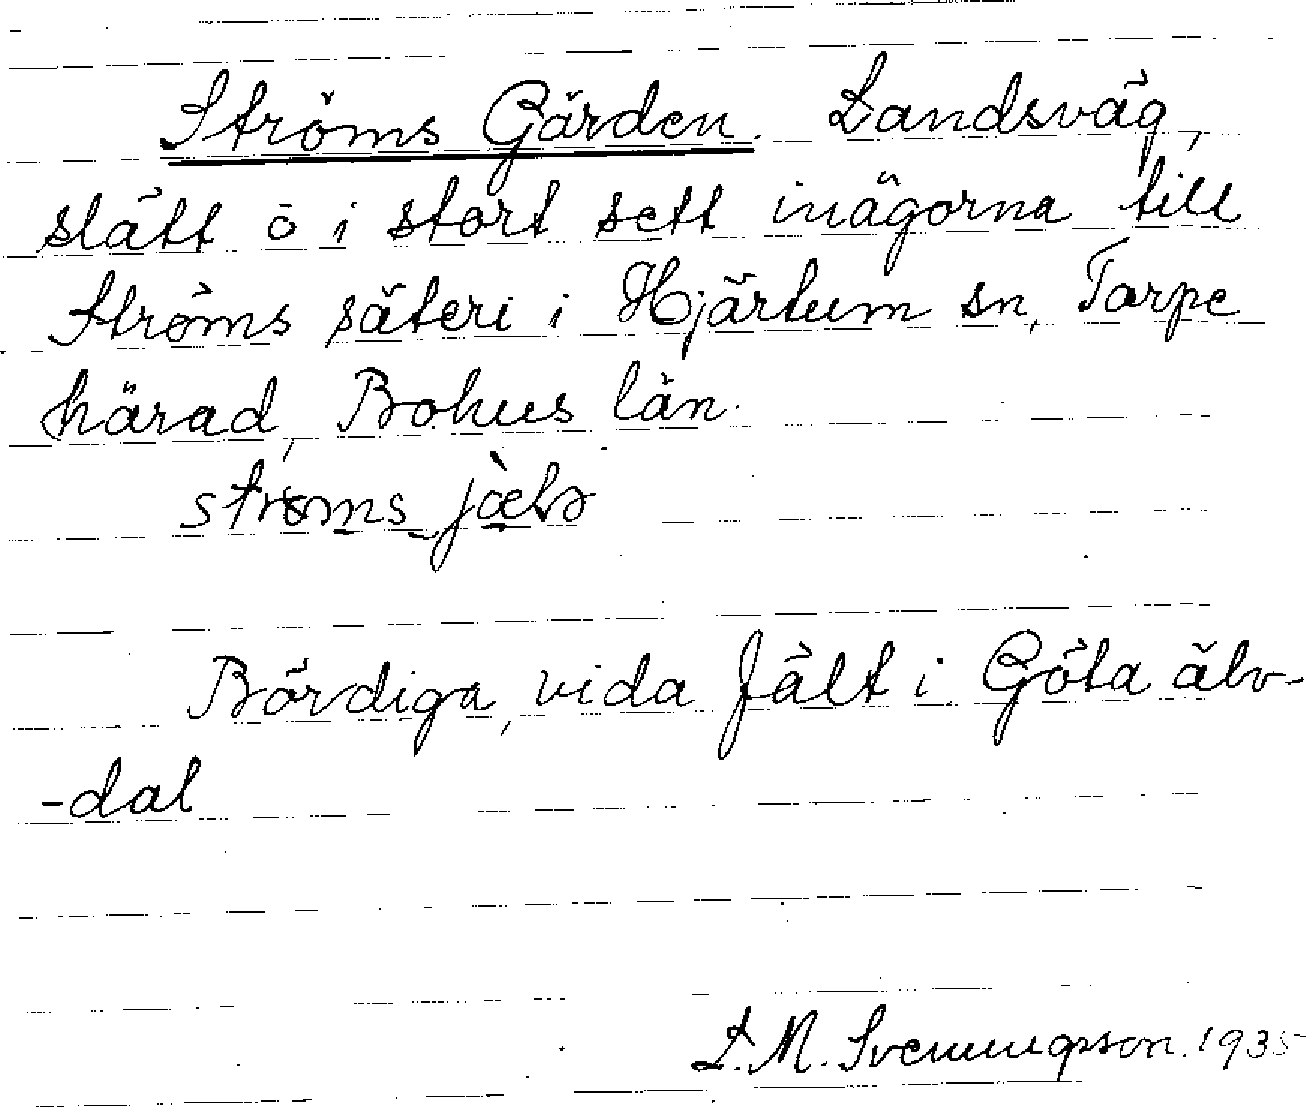 Ströms Gärden. Landsväg,
slätt o i stort sett inägorna till
Ströms säteri i Hjärtum sn, Torpe
härad, Bohus län.
ströms jæ̀lə
Bördiga, vida fält i Göta älv-
-dal
L. M. Svenungsson. 1935